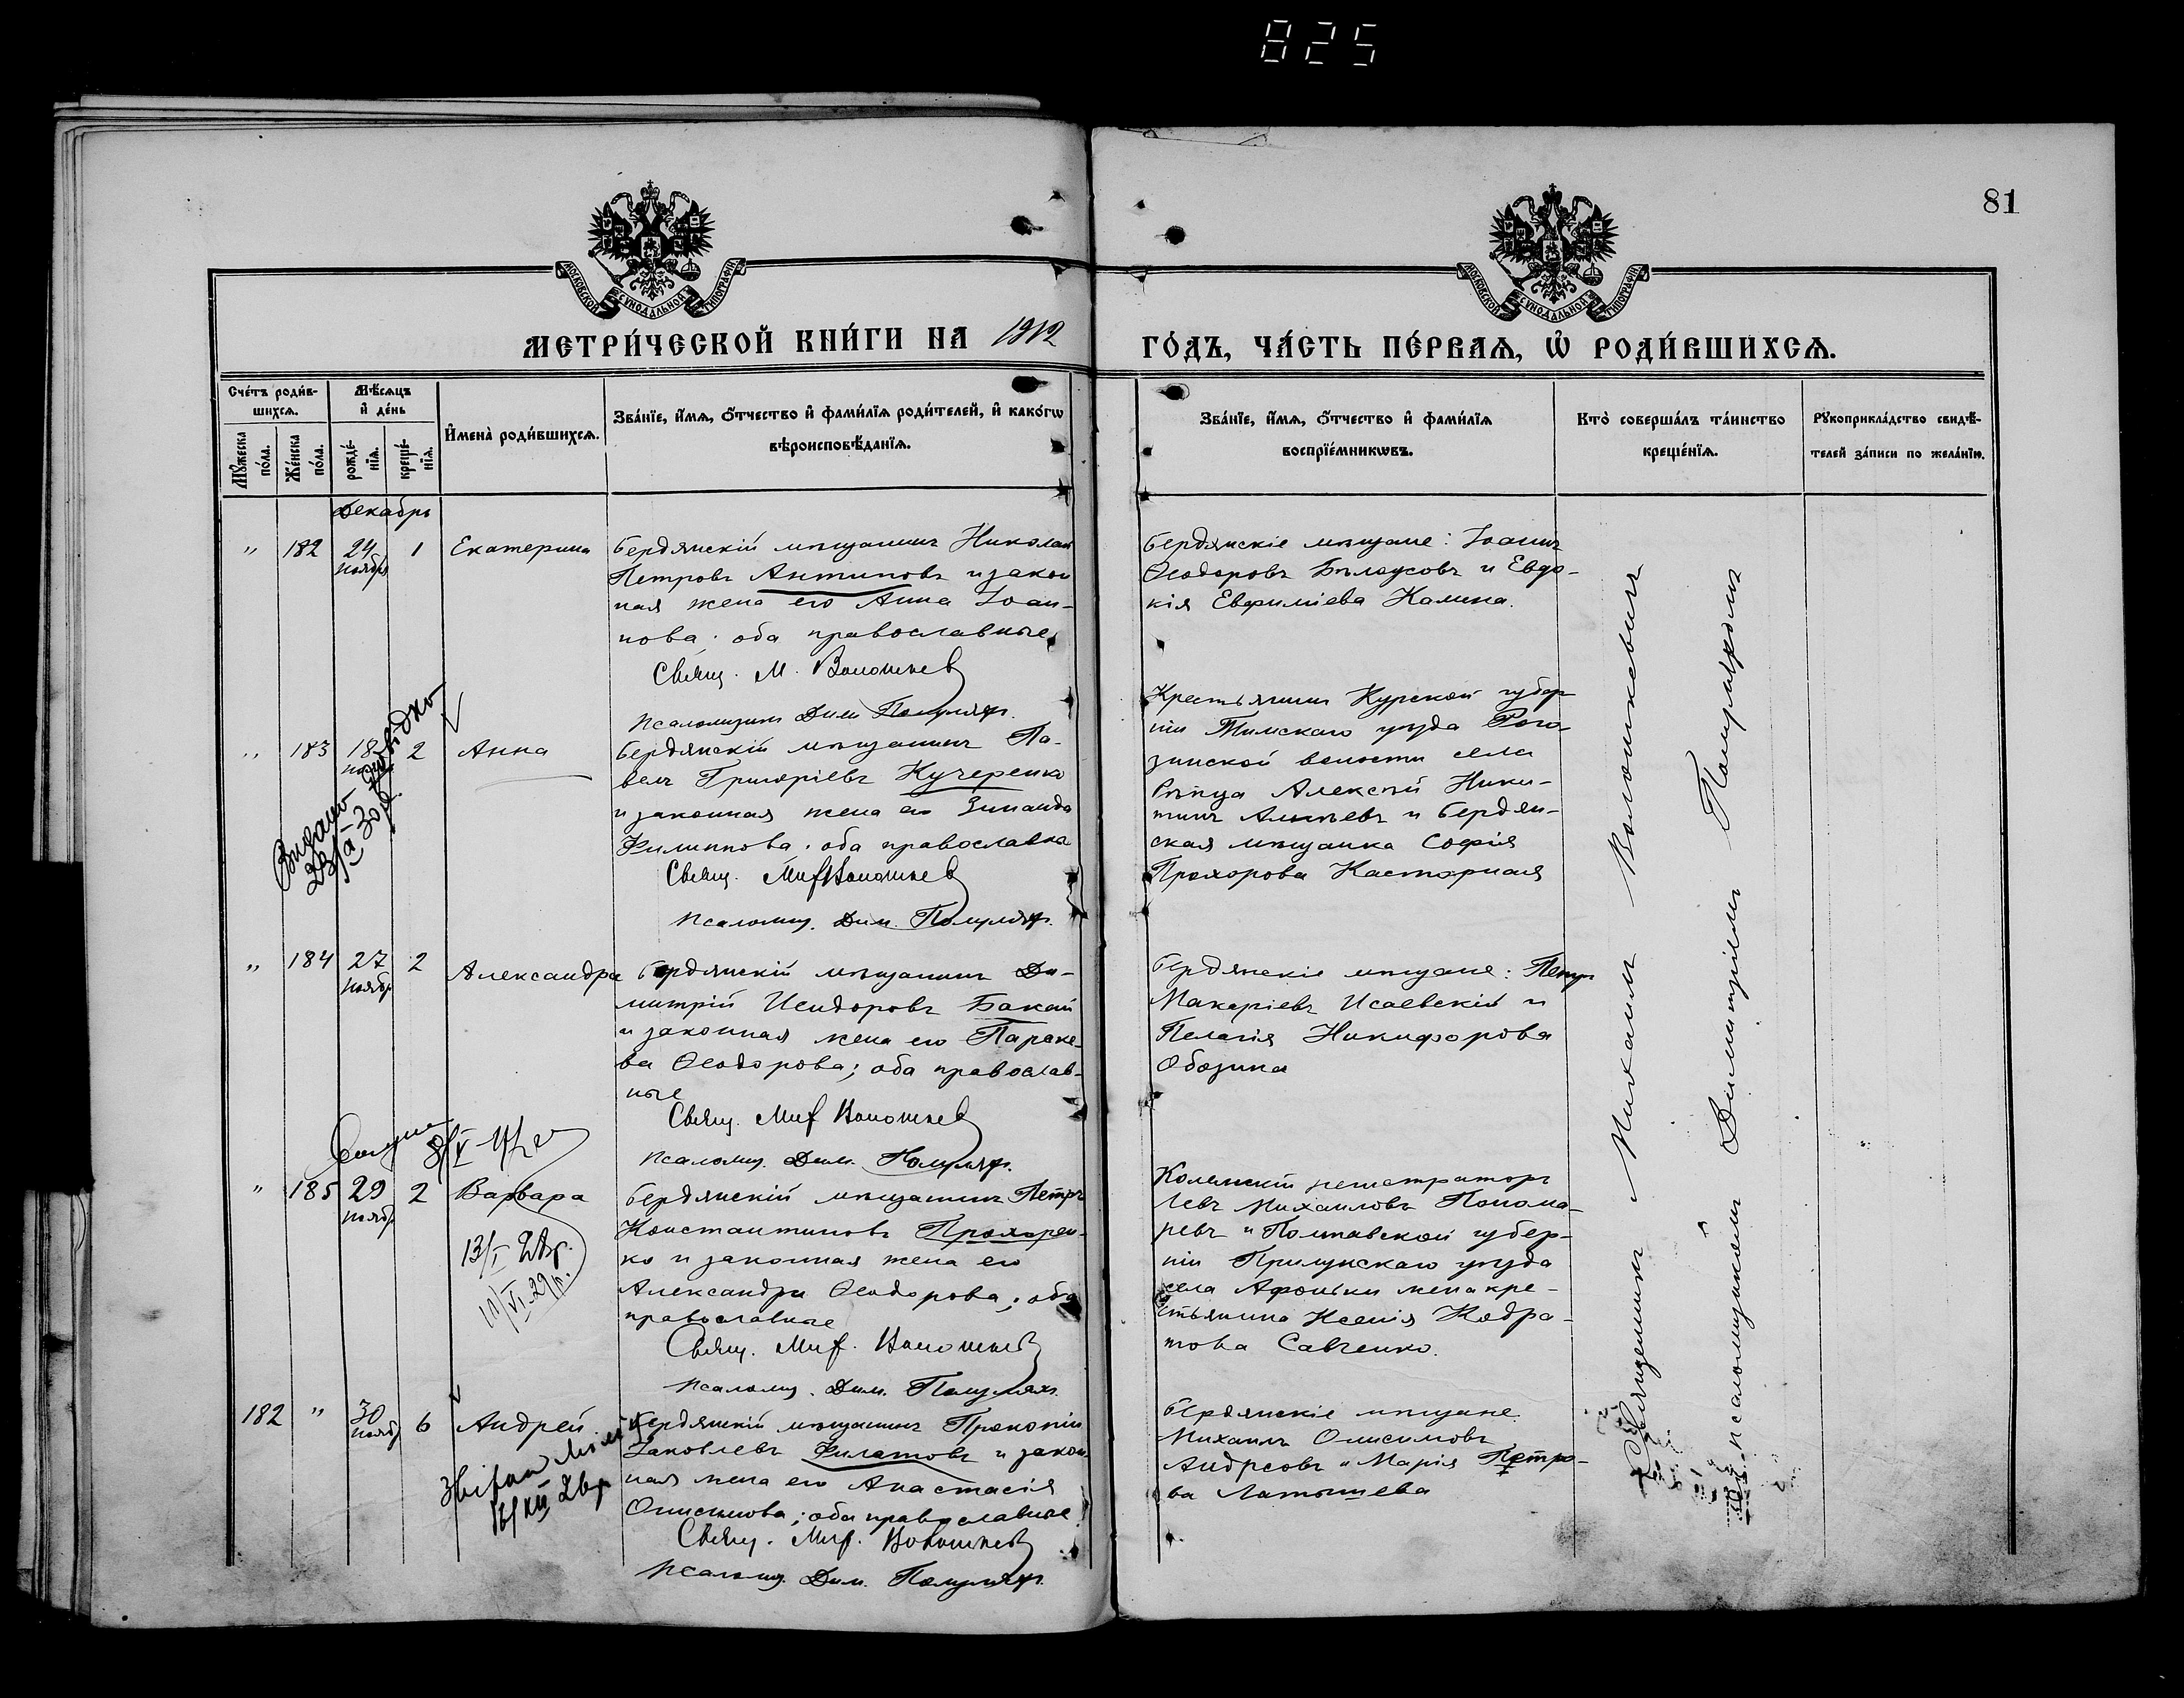 825
81
МОСКОВСКОЙ СѴНОДАЛЬНОЙ ТИПОГРАФІИ
МОСКОВСКОЙ СѴНОДАЛЬНОЙ ТИПОГРАФІИ
МЕТРИ́ЧЕСКОЙ КНИ́ГИ НА 1912 ГО́ДЪ, ЧА́СТЬ ПЕ́РВАѦ, Ѡ҆ РОДИ́ВШИХСѦ.
Сче́тъ роди́в-
шихсѧ.
Мꙋ́жеска
по́ла.
Же́нска
по́ла.
Мѣ́сѧцъ
и҆ де́нь
рожде́-
нїѧ.
креще́-
нїѧ.
И҆мена̀ роди́вшихсѧ.
Зва́нїе, и҆́мѧ, ѻ҆́тчество и҆ фами́лїѧ роди́телей, и҆ како́гѡ
вѣроисповѣ́данїѧ.
Зва́нїе, и҆́мѧ, ѻ҆́тчество и҆ фами́лїѧ
воспрїе́мникѡвъ.
Кто̀ соверша́лъ та́инство
креще́нїѧ.
Рꙋкоприкла́дство свидѣ́-
телей за́писи по жела́нїю.
Декабрь
" 182 24 ноября 1 Екатерина
Бердянскій мѣщанинъ Николай
Петровъ Антиповъ и закон
ная жена его Анна Іоан-
нова; оба православные
Свящ. М. Волошкев
Псаломщикъ Дим.
Бердянскіе мѣщане: Іоаннъ
Ѳеодоровъ Бѣлоусовъ и Евдо-
кія Евфиміева Калина.
" 183 18 2 Анна
Видано довідку
23/ІХ 30 р.
Бердянскій мѣщанинъ Па-
велъ Григоріевъ Кучеренко
и законная жена его Зинаида
Филиппова; оба православна
Свящ. Миh Волошкев
Псаломщ. Дим.
Крестьянинъ Курской губер
ніи Тимскаго уѣзда Рого-
зинской волости села
Алексѣй Ники-
тинъ и Бердян-
ская мѣщанка Софія
Прохорова Касторная
" 184 27 ноябр 2 Александра
Бердянскій мѣщанинъ Ди-
митрій Исидоровъ Бакай
и законная жена его Параске-
ва Ѳеодорова; оба православ-
ные
Свящ. Миh Волошкев
Псаломщ. Дим.
Бердянскіе мѣщане: Петръ
Макаріевъ Исаевскій и
Пелагія Никифорова
Обозина
" 185 29 ноябр 2 Варвара
13/І 24 р.
11/VI 29 р.
Бердянскій мѣщанинъ Петръ
Константиновъ Прохорен-
ко и законная жена его
Александра Ѳеодорова; оба
православные
Свящ. Миh. Волошкев
Псаломщ. Дим.
Колежскій регистраторъ
Левъ Михаиловъ Понома-
ревъ и Полтавской губер-
ніи Прилукскаго уѣзда
села Афоньки жена кре-
стьянина Ксенія Кодра-
това Савченко.
182 " 30 ноябр 6 Андрей
Бердянскій мѣщанинъ Прокопій
Іаковлевъ Филатовъ и закон-
ная жена его Анастасія
Онисимова; оба православные
Свящ. Миh. Волошкев
Псаломщ. Дим.
Бердянскіе мѣщане
Михаилъ Онисимовъ
Андреовъ и Марія Петро-
ва Латышева
Священникъ Михаилъ Волошкевичъ
псаломщикомъ Димитріемъ